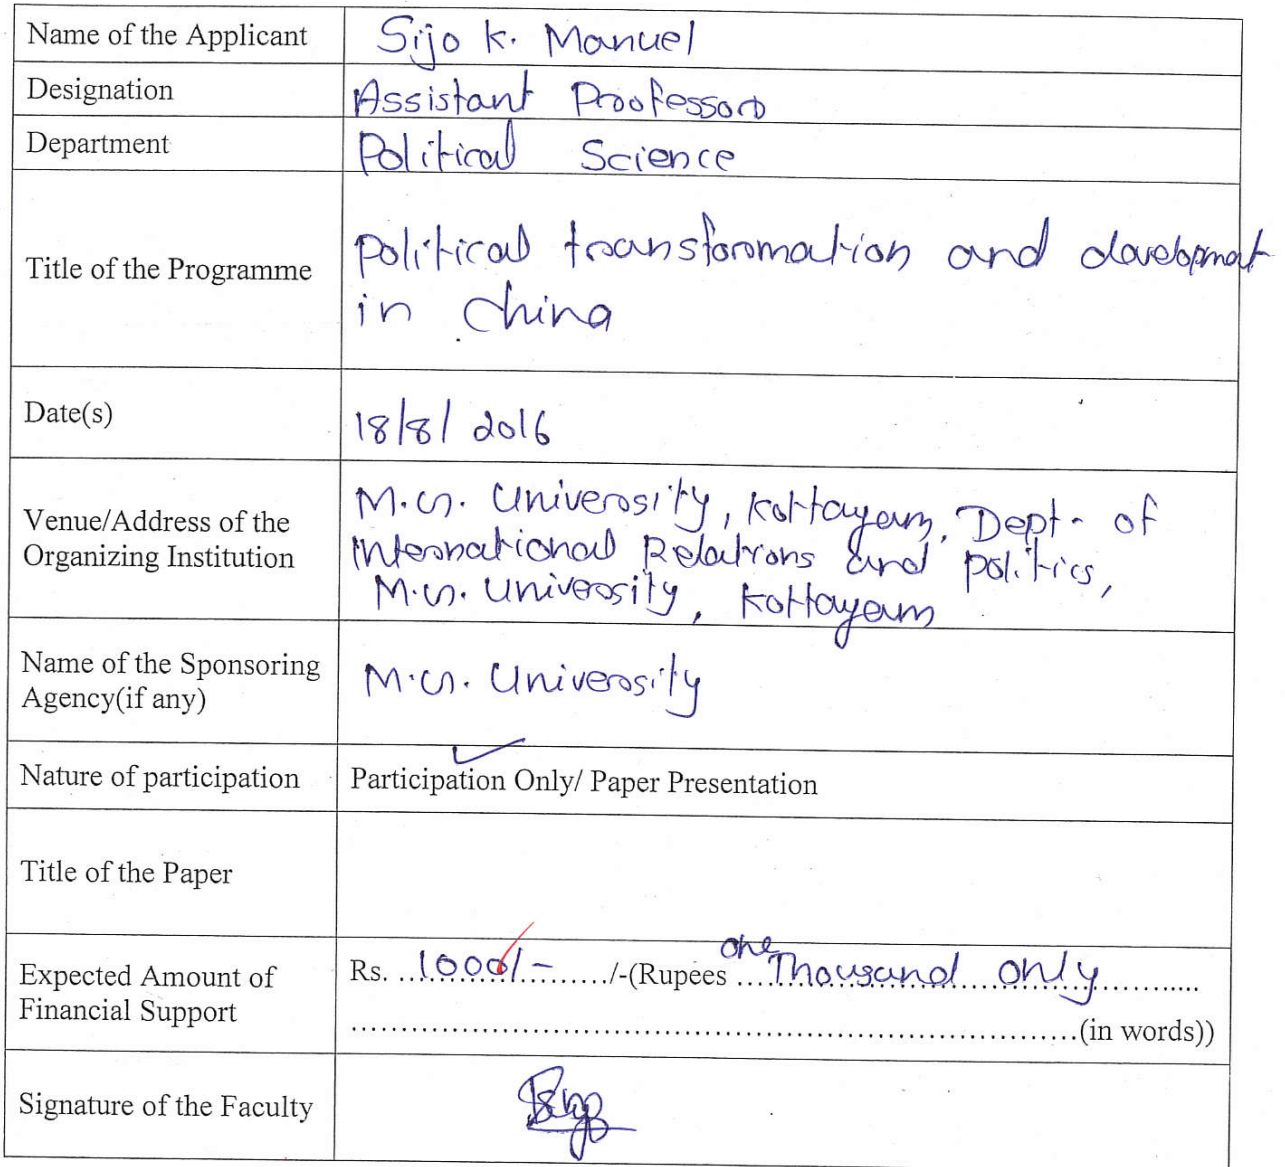 Name of the Applicant Sijo K. Manuel
Designation Assistant Professor
Department Political Science
Title of the Programme Political transformation and development
in China
Date(s) 18/8/2016
Venue/Address of the M.G. University, Kottayam, Dept. of
Organizing Institution International Relations and Politics,
M.G. University, Kottayam
Name of the Sponsoring M.G. University
Agency(if any)
Nature of participation Participation Only/ Paper Presentation
Title of the Paper
Expected Amount of Rs. ...1000/-........./-(Rupees one Thousand only
Financial Support ...(in words))
Signature of the Faculty